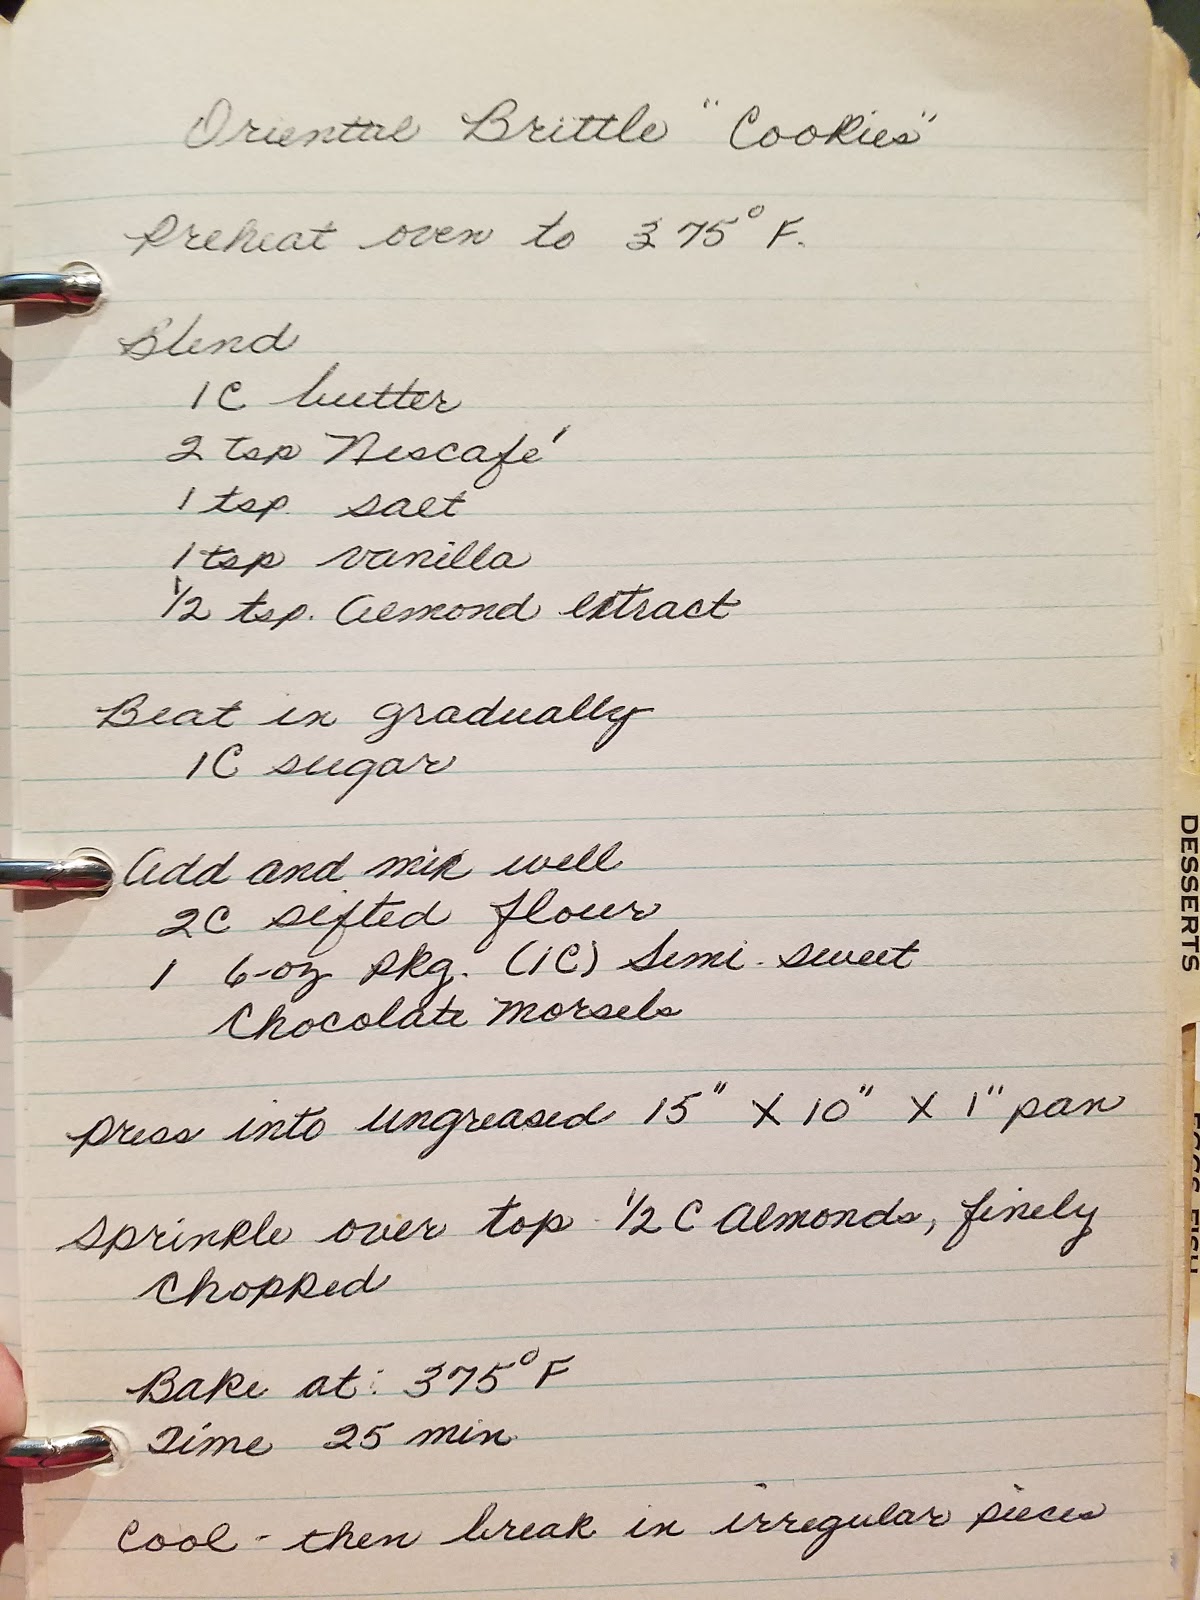 Oriental Brittle "Cookies"
Preheat oven to 375° F.
Blend
1C butter
2 tsp Nescafé
1 tsp. salt
1 tsp vanilla
1/2 tsp. Almond extract
Beat in gradually
1C sugar
Add and mix well
2C sifted flour
1 6-oz pkg. (1C) Semi-sweet
Chocolate Morsels
Press into ungreased 15" X 10" X 1" pan
Sprinkle over top 1/2 C Almonds, finely
chopped
Bake at: 375° F
Time 25 min
Cool - then break in irregular pieces
DESSERTS